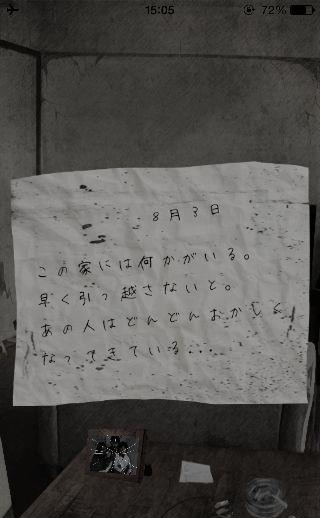 15:05 72%
8月3日
この家には何かがいる。
早く引っ越さないと。
あの人はどんどんおかしく
なってきている...